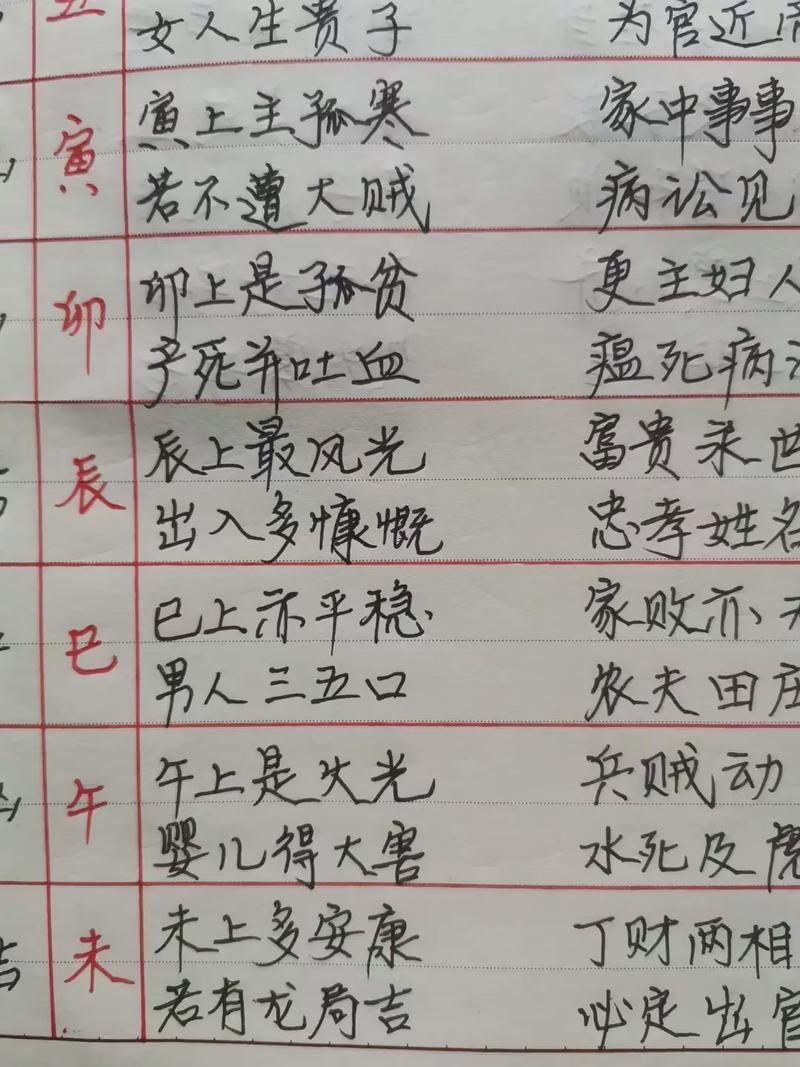 丑
女人生贵子 为官近
寅
寅上主孤寒 家中事事
若不遭大贼 病讼见
卯
卯上是孤贫 更主妇人
产死并吐血 瘟死病
辰
辰上最风光 富贵录世
出入多慷慨 忠孝姓名
巳
巳上亦平稳 家败亦
男人三五口 农夫田庄
午
午上是火光 兵贼动
婴儿得大害 水死及虎
未
未上多安康 丁财两相
若有龙局吉 必定出官
吉